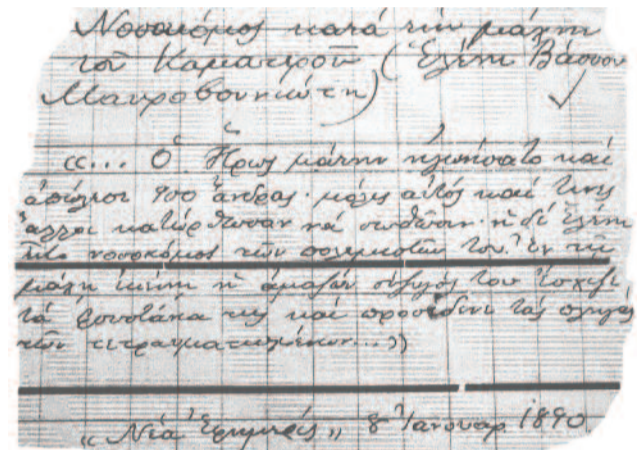 Νοσοκόμος κατά τήν μάχην
τοῦ Καματεροῦ (Ἑλένη Βάσσου
Μαυροβουνιώτη)
«... Ὁ Ἥρως μάτην ἠγωνίσατο καί
ἀπώλεσε 900 ἄνδρας· μόλις αὐτός καί τινες
ἄλλοι κατώρθωσαν νά σωθῶσιν· ἡ δέ Ἑλένη
ἦτο νοσοκόμος τῶν πολεμιστῶν του. Ἐν τῇ
μάχῃ ἐκείνῃ ἡ ἀμαζών σύζυγός του ἔσχιζε
τά φουστάνια της καί προσέδενε τάς πληγάς
τῶν τετραυματισμένων...»
"Νέα Ἐφημερίς" 8 Ἰανουαρ. 1890.